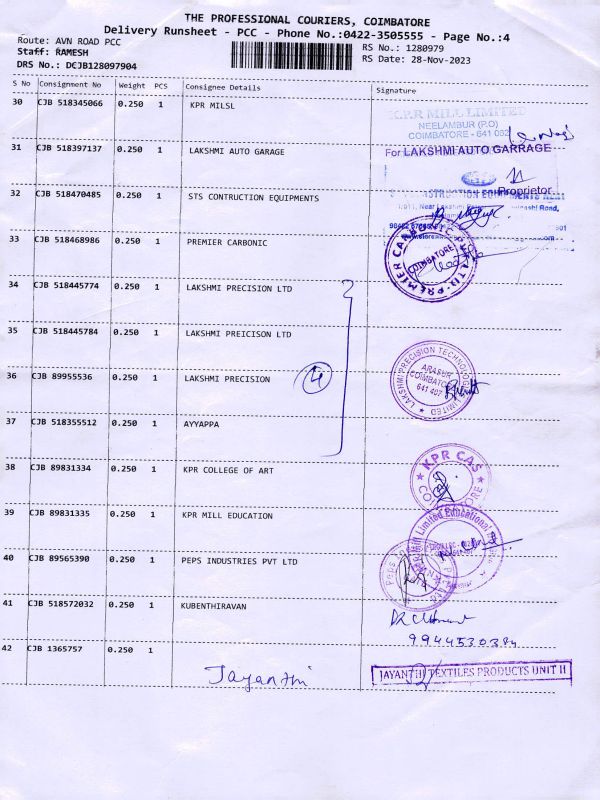 THE PROFESSIONAL COURIERS, COIMBATORE
Delivery Runsheet - PCC - Phone No.:0422-3505555 - Page No.:4
Route: AVN ROAD PCC
Staff: RAMESH
DRS No.: DCJB128097904
RS No.: 1280979
RS Date: 28-Nov-2023
S No Consignment No Weight PCS Consignee Details Signature
30 CJB 518345066 0.250 1 KPR MILSL
K.P.R MILL LIMITED
NEELAMBUR (P.O)
COIMBATORE - 641 062
31 CJB 518397137 0.250 1 LAKSHMI AUTO GARAGE
For LAKSHMI AUTO GARRAGE
Proprietor
32 CJB 518470485 0.250 1 STS CONTRUCTION EQUIPMENTS
33 CJB 518468986 0.250 1 PREMIER CARBONIC
COIMBATORE
34 CJB 518445774 0.250 1 LAKSHMI PRECISION LTD
35 CJB 518445784 0.250 1 LAKSHMI PREICISON LTD
36 CJB 89955536 0.250 1 LAKSHMI PRECISION
4
LAKSHMI PRECISION TECHNOLOGIES LIMITED
ARASUR
COIMBATORE
641 407
37 CJB 518355512 0.250 1 AYYAPPA
38 CJB 89831334 0.250 1 KPR COLLEGE OF ART
KPR CAS
COIMBATORE
39 CJB 89831335 0.250 1 KPR MILL EDUCATION
Mill Limited Educational
40 CJB 89565390 0.250 1 PEPS INDUSTRIES PVT LTD
Peps
41 CJB 518572032 0.250 1 KUBENTHIRAVAN
9944530384
42 CJB 1365757 0.250 1
Jayanthi
JAYANTHI TEXTILES PRODUCTS UNIT II